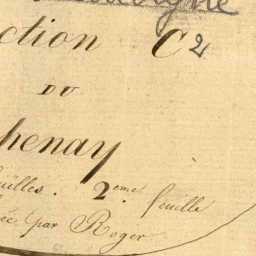 ction C2
DU
henay
uilles. 2eme feuille
ée par Roger